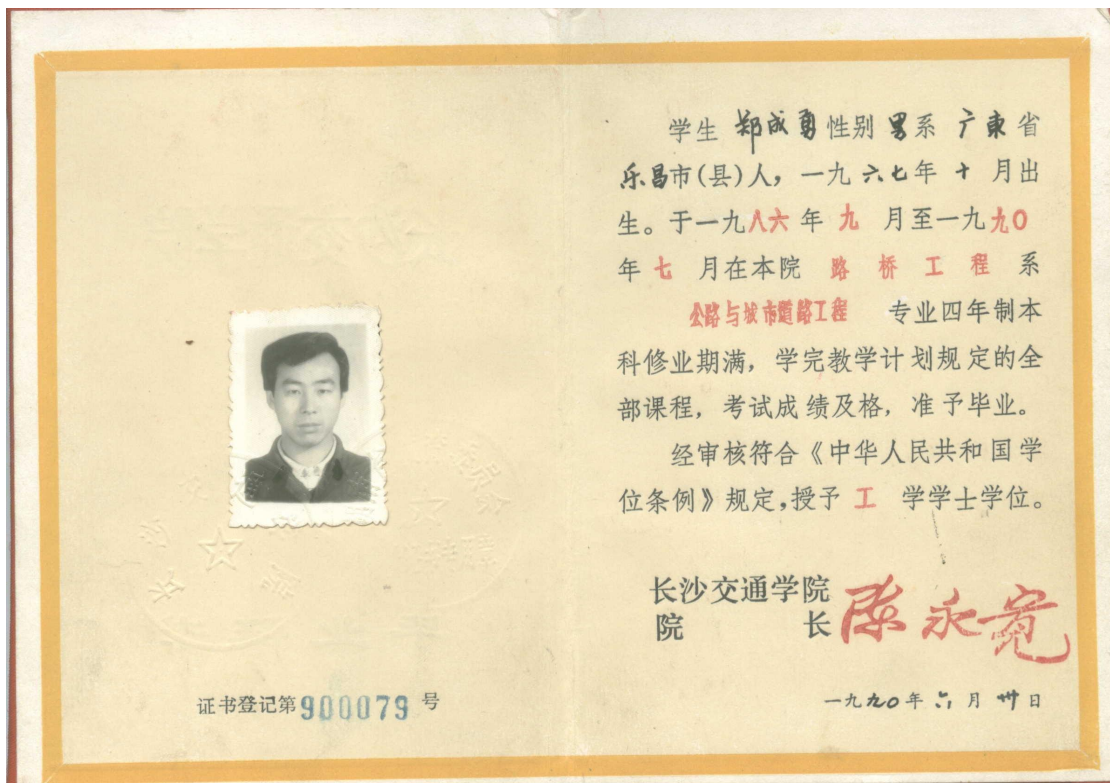 学生 郑成勇 性别 男 系 广东 省
乐昌市(县)人，一九六七年 十 月出
生。于一九八六 年 九 月至一九九0
年 七 月在本院 路 桥 工 程 系
公路与城市道路工程 专业四年制本
科修业期满，学完教学计划规定的全
部课程，考试成绩及格，准予毕业。
经审核符合《中华人民共和国学
位条例》规定，授予 工 学学士学位。
长沙交通学院
院 长 陈永宽
一九九0年 六 月 卅 日
证书登记第900079 号